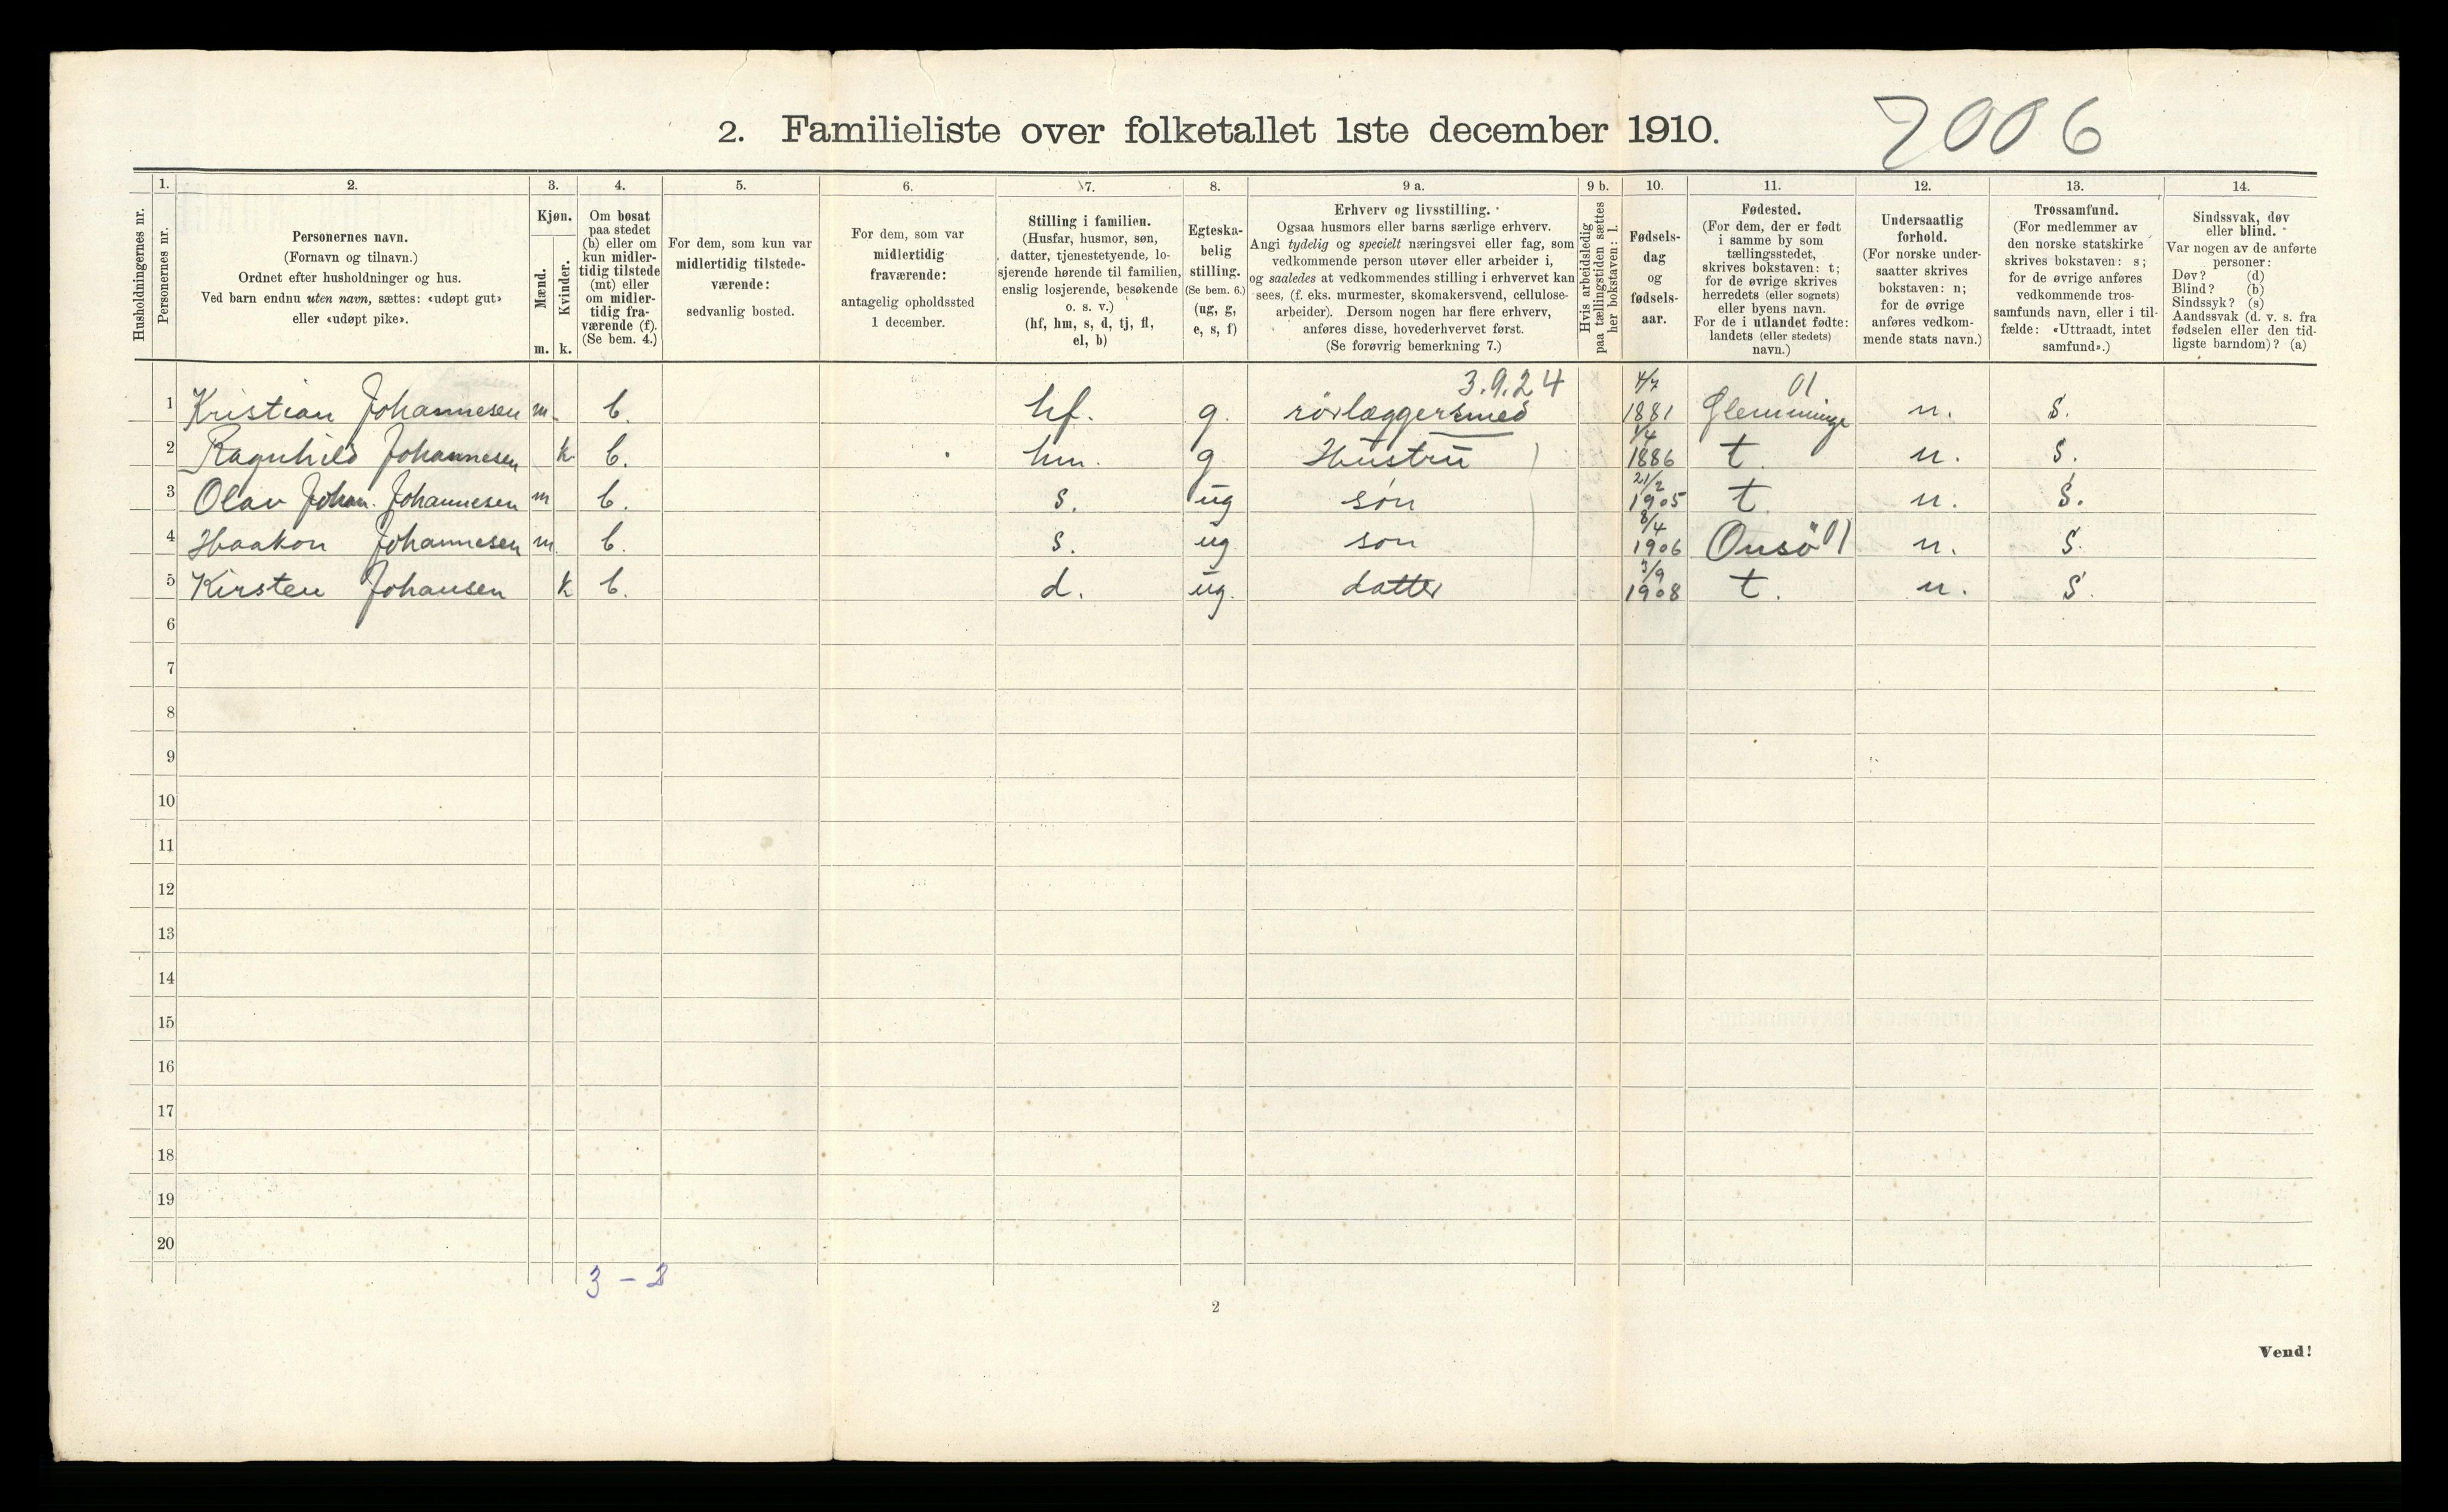 2. Familieliste over folketallet 1ste december 1910.
7006
Husholdningernes nr.
1.
Personernes nr.
2.
Personernes navn.
(Fornavn og tilnavn.)
Ordnet efter husholdninger og hus.
Ved barn endnu uten navn, sættes: «udøpt gut»
eller «udøpt pike».
3.
Kjøn.
Mænd.
m.
Kvinder.
k.
4.
Om bosat
paa stedet
(b) eller om
kun midler-
tidig tilstede
(mt) eller
om midler-
tidig fra-
værende (f).
(Se bem. 4.)
5.
For dem, som kun var
midlertidig tilstede-
værende:
sedvanlig bosted.
6.
For dem, som var
midlertidig
fraværende:
antagelig opholdssted
1 december.
7.
Stilling i familien.
(Husfar, husmor, søn,
datter, tjenestetyende, lo-
sjerende hørende til familien,
enslig losjerende, besøkende
o. s. v.)
(hf, hm, s, d, tj, fl,
el, b)
8.
Egteska-
belig
stilling.
(Se bem. 6.)
(ug, g,
e, s, f)
9 a.
Erhverv og livsstilling.
Ogsaa husmors eller barns særlige erhverv.
Angi tydelig og specielt næringsvei eller fag, som
vedkommende person utøver eller arbeider i,
og saaledes at vedkommendes stilling i erhvervet kan
sees, (f. eks. murmester, skomakersvend, cellulose-
arbeider). Dersom nogen har flere erhverv,
anføres disse, hovederhvervet først.
(Se forøvrig bemerkning 7.)
9 b.
Hvis arbeidsledig
paa tællingstiden sættes
her bokstaven: l.
10.
Fødsels-
dag
og
fødsels-
aar.
11.
Fødested.
(For dem, der er født
i samme by som
tællingsstedet,
skrives bokstaven: t;
for de øvrige skrives
herredets (eller sognets)
eller byens navn.
For de i utlandet fødte:
landets (eller stedets)
navn.)
12.
Undersaatlig
forhold.
(For norske under-
saatter skrives
bokstaven: n;
for de øvrige
anføres vedkom-
mende stats navn.)
13.
Trossamfund.
(For medlemmer av
den norske statskirke
skrives bokstaven: s;
for de øvrige anføres
vedkommende tros-
samfunds navn, eller i til-
fælde: «Uttraadt, intet
samfund».)
14.
Sindssvak, døv
eller blind.
Var nogen av de anførte
personer:
Døv? (d)
Blind? (b)
Sindssyk? (s)
Aandssvak (d. v. s. fra
fødselen eller den tid-
ligste barndom)? (a)
3.9.24 4/7 01
1 Kristian Johannesen m. b. hf. g. rørlæggersmed 1881 Glemminge n. s.
1/4
2 Ragnhild Johannesen k b. hm. g Hustru 1886 t. n. s.
21/2
3 Olav Johan. Johannesen m b. s. ug søn 1905 t. n. s.
8/4
4 Haakon Johannesen m. b. s. ug søn 1906 Onsö 01 n. s.
3/9
5 Kirsten Johansen k b. d. ug. datter 1908 t. n. s.
6
7
8
9
10
11
12
13
14
15
16
17
18
19
20
3 – 2
2
Vend!